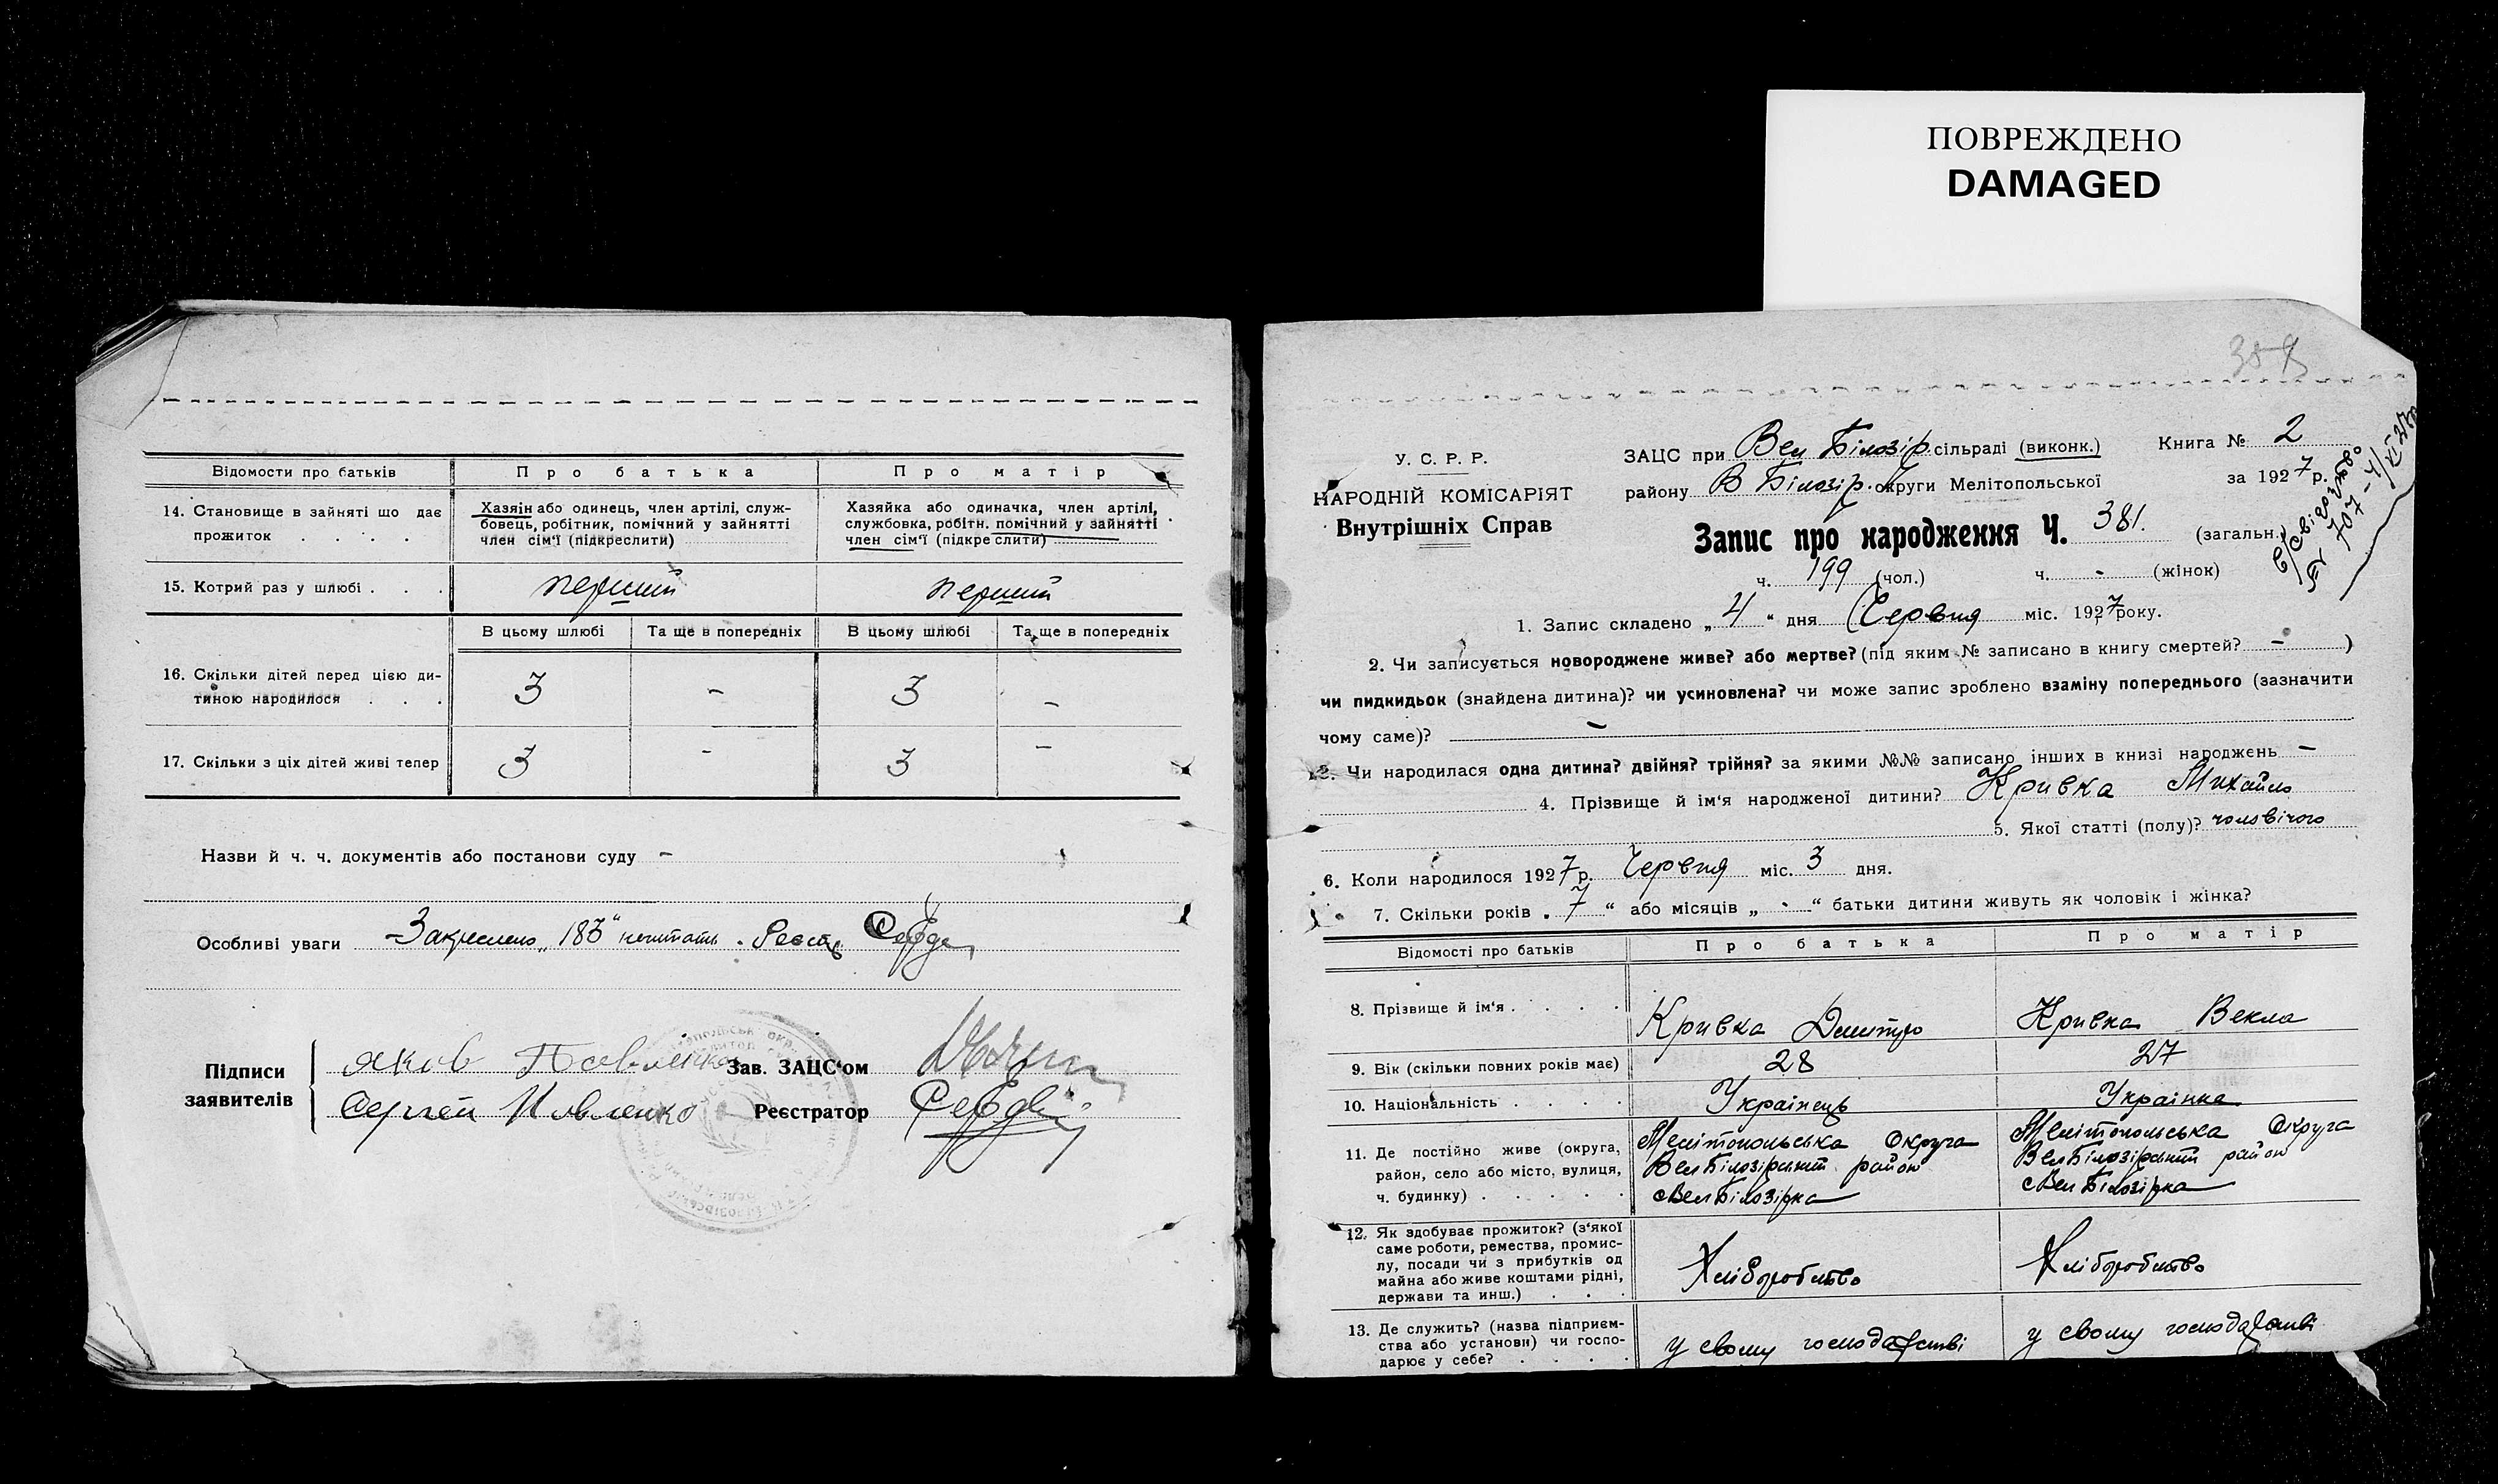 ПОВРЕЖДЕНО
DAMAGED
Відомости про батьків
Про батька
Про матір
14. Становище в зайняті що дає
прожиток . . . .
Хазяін або одинець, член артілі, служ-
бовець, робітник, помічний у зайнятті
член сім'ї (підкреслити)
Хазяйка або одиначка, член артілі,
службовка, робітн. помічний у зайнятті
член сім'ї (підкреслити)
15. Котрий раз у шлюбі . . .
перший
перший
В цьому шлюбі
Та ще в попередніх
В цьому шлюбі
Та ще в попередніх
16. Скільки дітей перед цією ди-
тиною народилося . . .
3
-
3
-
17. Скільки з ціх дітей живі тепер
3
-
3
-
Назви й ч. ч. документів або постанови суду -
Особливі уваги Закреслено „183"
Підписи
заявителів
Яков Павленко
Сергей Павленко
Зав. ЗАЦС'ом
Реєстратор
У. С. Р. Р.
НАРОДНІЙ КОМІСАРІЯТ
Внутрішніх Справ
ЗАЦС при Вел Білозір. сільраді (виконк.)
району В Білозір. округи Мелітопольської
Книга № 2
за 1927 р.
Запис про народження Ч. 381. (загальн.)
ч. 199 (чол.) ч. - (жінок)
1. Запис складено „4" дня Червня міс. 1927 року.
2. Чи записується новороджене живе? або мертве? (під яким № записано в книгу смертей? - )
чи пидкидьок (знайдена дитина)? чи усиновлена? чи може запис зроблено взаміну попереднього (зазначити
чому саме)? -
3. Чи народилася одна дитина? двійня? трійня? за якими №№ записано інших в книзі народжень -
4. Прізвище й ім'я народженої дитини? Кривка Михайло
5. Якої статті (полу)? чоловічого
6. Коли народилося 1927 р. Червня міс. 3 дня.
7. Скільки років „7" або місяців „-" батьки дитини живуть як чоловік і жінка?
Відомості про батьків
Про батька
Про матір
8. Прізвище й ім'я . . . .
Кривка Дмитро
Кривка Векла
9. Вік (скільки повних років має)
28
27
10. Національність . . . .
Українець
Українка
11. Де постійно живе (округа,
район, село або місто, вулиця,
ч. будинку) . . . . .
Мелітопольська Округа
Вел Білозірський район
с Вел Білозірка
Мелітопольська Округа
Вел Білозірський район
с Вел Білозірка
12. Як здобуває прожиток? (з'якої
саме роботи, ремества, промис-
лу, посади чи з прибутків од
майна або живе коштами рідні,
держави та инш.) . . .
Хліборобство
Хліборобство
13. Де служить? (назва підприєм-
ства або установи) чи госпо-
дарює у себе? . . . .
у свому господарстві
у свому господарстві